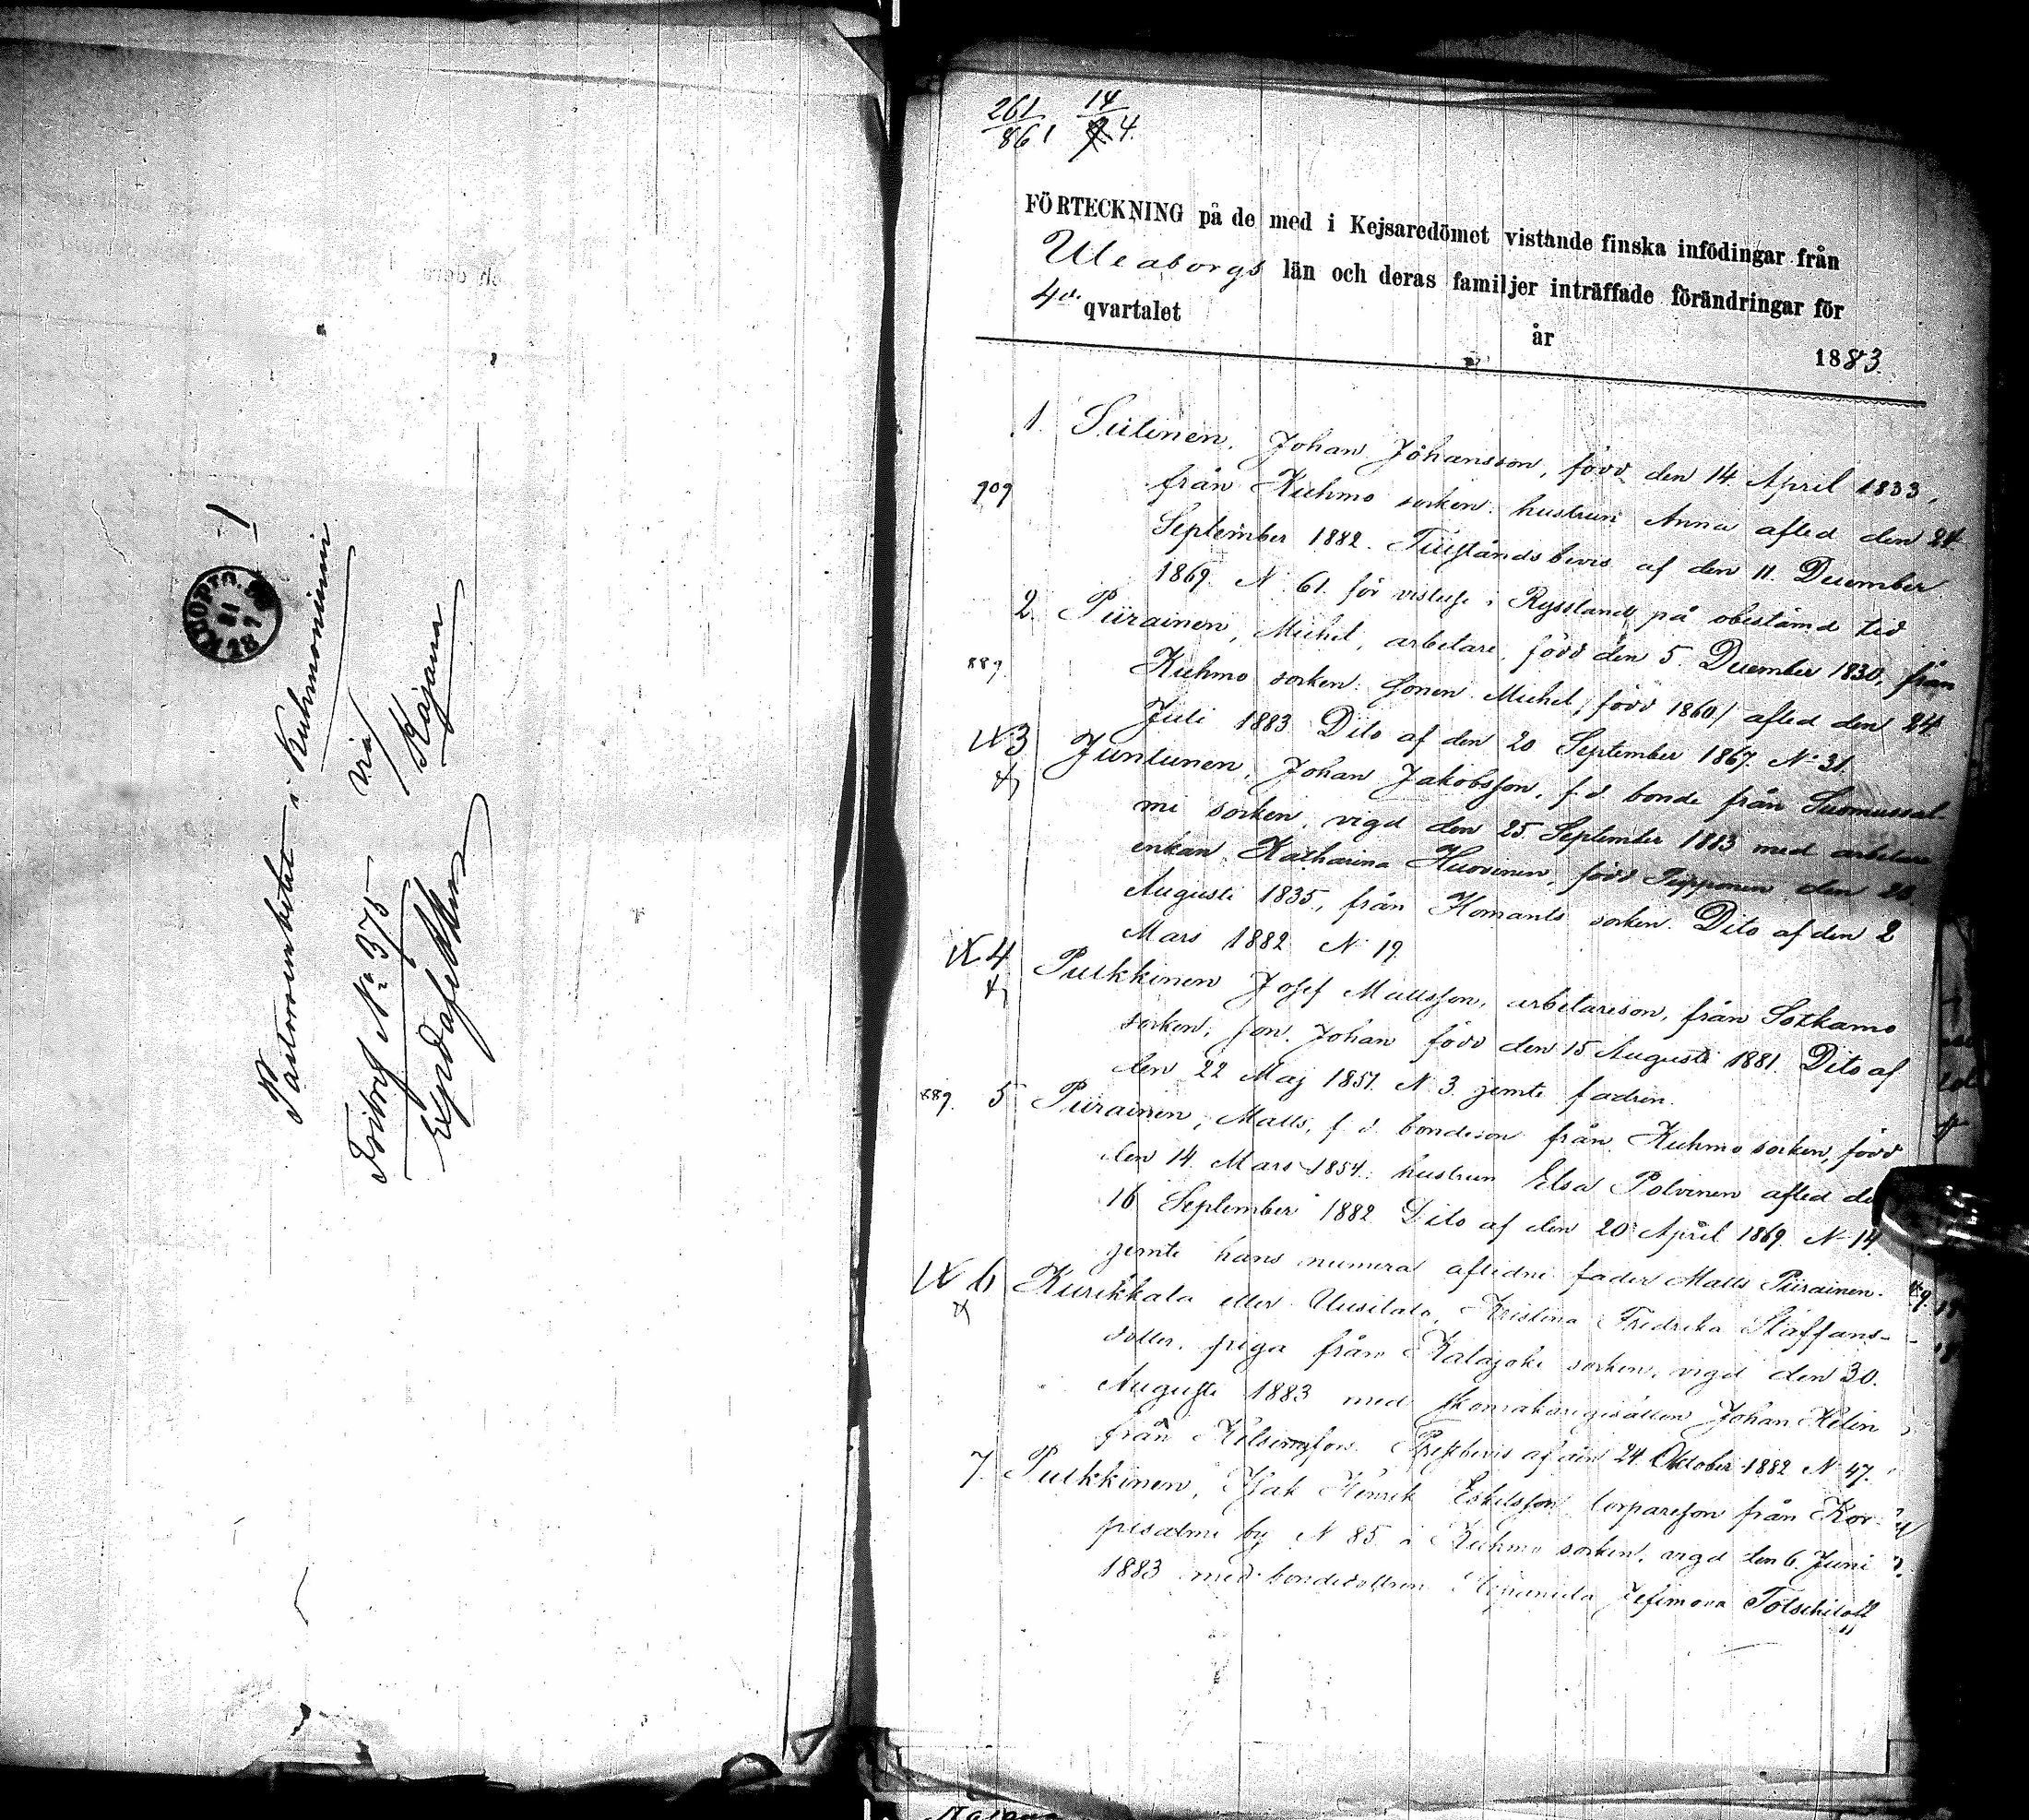 Pastorsembetet i Kuhmoniemi
via/
Kajana
Fribref N:o 375
KUOPIO
261/861 14/4.
FÖRTECKNING på de med i Kejsaredömet vistande finska infödingar från
Uleaborgs län och deras familjer inträffade förändringar för
4de qvartalet år 1883.
1. Siitinen, Johan Johansson, född den 14 April 1833,
909 från Kuhmo socken: hustrun Anna afled den 24
September 1882. Tillståndsbevis af den 11. December
1869. N 61. för vistelse i Ryssland på obestämd tid
2. Piirainen, Michel, arbetare, född den 5. December 1830, från
889. Kuhmo socken: sonen Michel, född 1860/ afled den 24
Juli 1883 Dito af den 20 September 1867. N:o 31.
3 Juntunen, Johan Jakobsson, f. d. bonde från Suomussal-
mi socken, vigd den 25 September 1883 med arbetare
enkan Katharina Huovinen, född Piipponen den 28
Augusti 1835, från Ilomants socken. Dito af den 2
Mars 1882 N 19.
4 Pulkkinen Josef Mattsson, arbetareson, från Sotkamo
socken, son. Johan född den 15 Augusti 1881. Dito af
den 22 Maj 1851. N 3. jemte fadren.
889. 5 Piirainen, Matts, f. d. bondeson från Kuhmo socken, född
den 14. Mars 1854.: hustrun Elsa Polvinen afled de
16 September 1882 Dito af den 20 April 1869. N 14.
jemte hans numera aflidne fader Matts Piirainen.
6 Kurikkala eller Uusitalo, Kristina Fredrika Staffans-
dotter, piga från Kalajoki socken, vigd den 30.
Augusti 1883 med skomakaregesällen Johan Helin
från Helsingfors. Prestbevis af den 24. Oktober 1882 N 47.
7. Pulkkinen, Isak Henrik Eskelsson torpareson från Kor-
pisalmi by N 85 i Kuhmo socken, vigd den 6. Juni
1883 med bondedottren Jefimova Tolschiloff